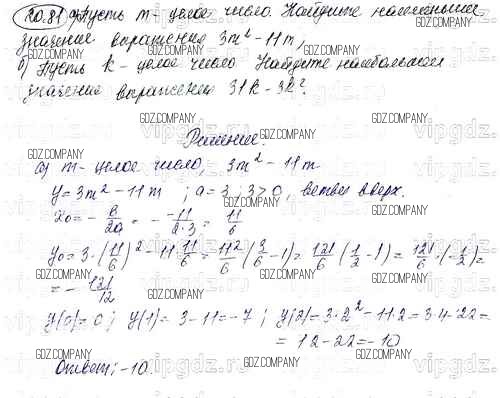 20.81 а) Пусть m - целое число. Найдите наименьшее
значение выражения 3m² - 11m,
б) Пусть k - целое число Найдите наибольшее
значение выражения 31k - 3k².
Решение.
а) m - целое число, 3m² - 11m
y = 3m² - 11m ; a = 3, 3 > 0, ветви вверх.
x₀ = - b/2a = - -11/2·3 = 11/6
y₀ = 3 · (11/6)² - 11 · 11/6 = 11²/6 (3/6 - 1) = 121/6 (1/2 - 1) = 121/6 · (-1/2) =
= - 121/12
y(0) = 0 ; y(1) = 3 - 11 = -7 ; y(2) = 3·2² - 11·2 = 3·4 - 22 =
= 12 - 22 = -10
Ответ: -10.
GDZ.COMPANY
vipgdz.ru